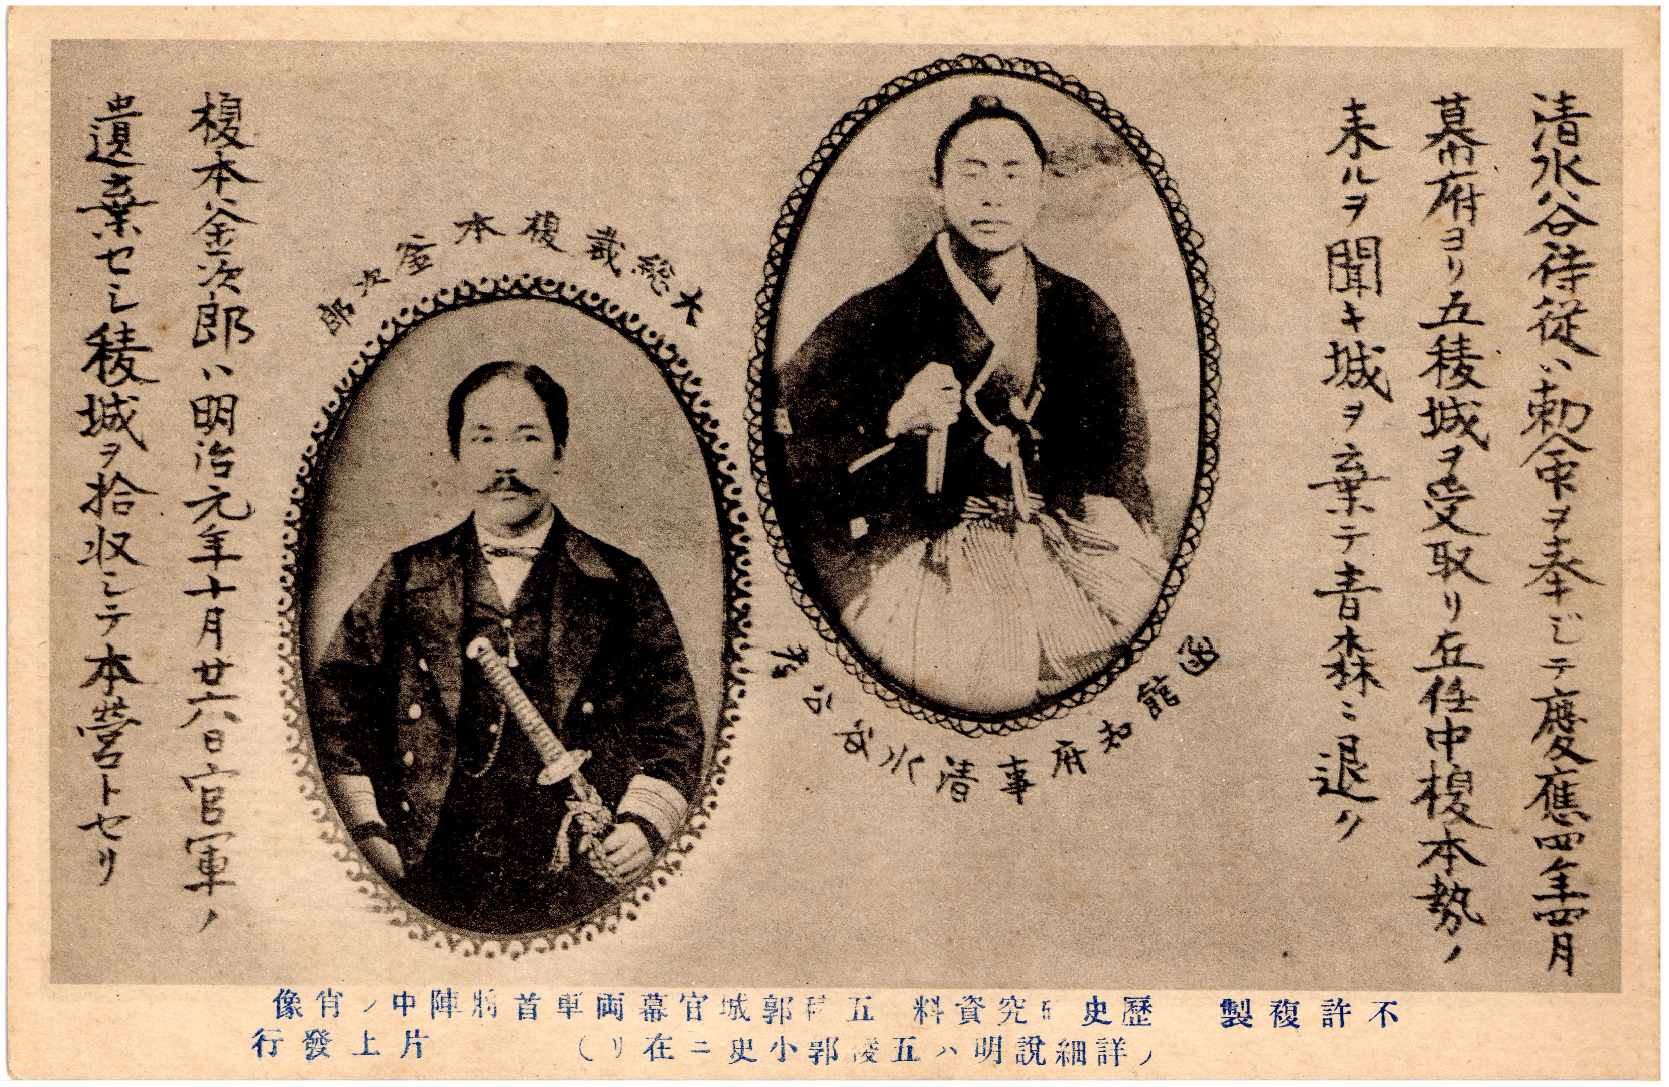 清水谷侍従ハ勅命ヲ奉ジテ慶應四年四月
幕府ヨリ五稜城ヲ受取リ在任中榎本勢ノ
来ルヲ聞キ城ヲ棄テ青森ニ退ク
函館知府事清水谷公考
大総裁榎本釜次郎
榎本釜次郎ハ明治元年十月廿六日官軍ノ
遺棄セシ稜城ヲ拾収シテ本営トセリ
不許複製
歷史研究資料 五稜郭城官幕両軍首將陣中ノ肖像
(詳細說明ハ五稜郭小史ニ在リ)
片上發行